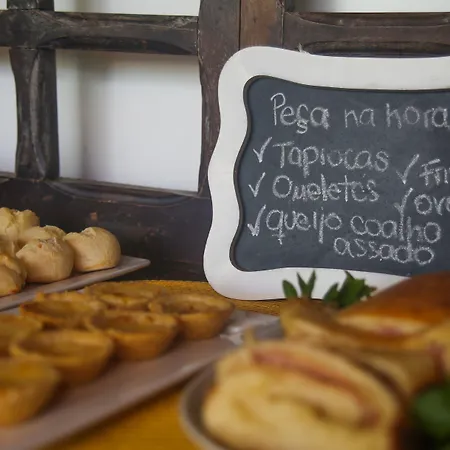 Peça na hora
✓ Tapiocas
✓ Omeletos ✓
✓ queijo coalho
assado